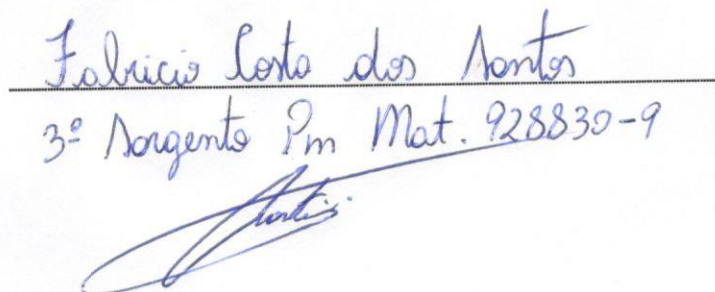 Fabricio Costa dos Santos
3º Sargento Pm Mat. 928830-9